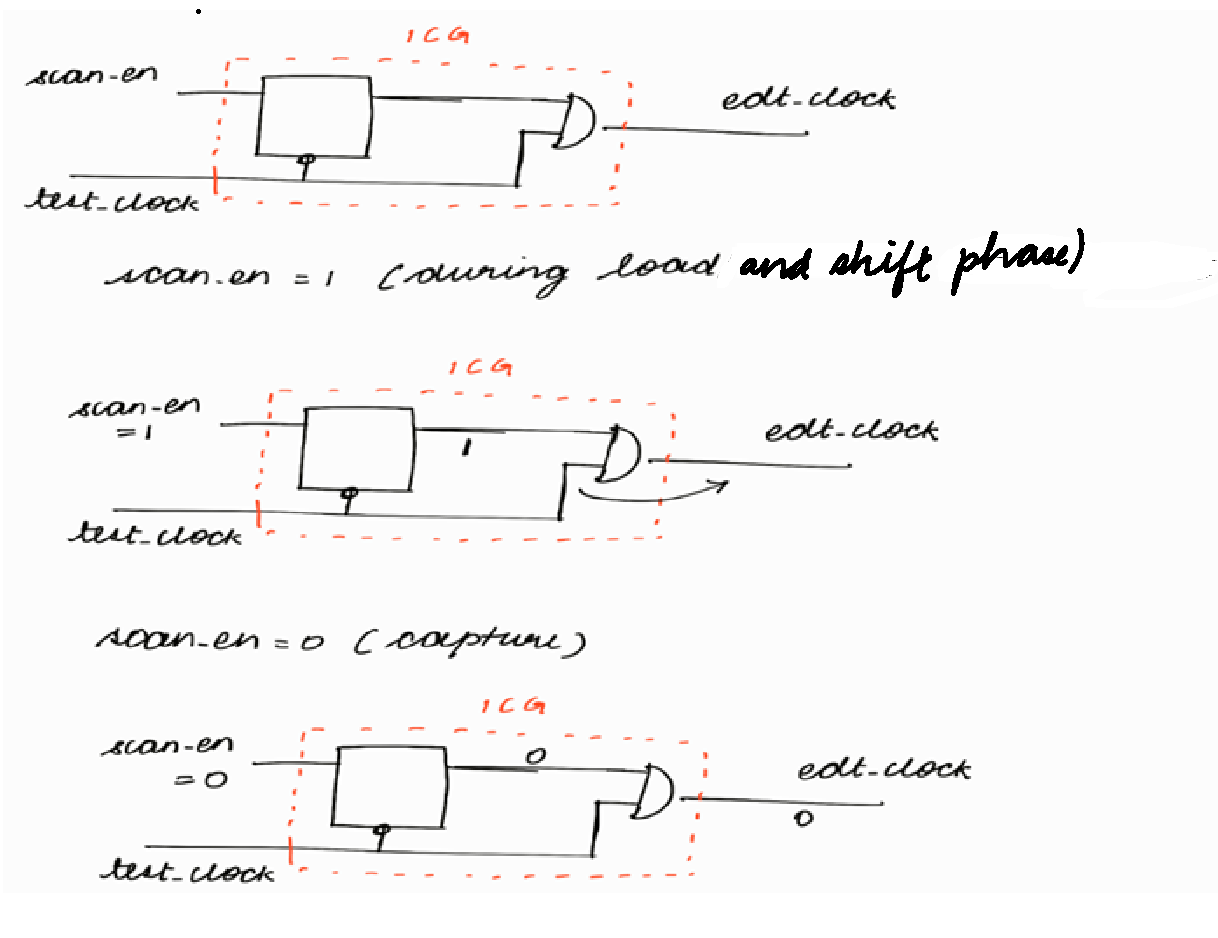 ICG
scan-en
edt-clock
test_clock
scan-en = 1 (during load and shift phase)
ICG
scan-en
= 1
1
edt-clock
test_clock
scan-en = 0 (capture)
ICG
scan-en
= 0
0
edt-clock
0
test_clock